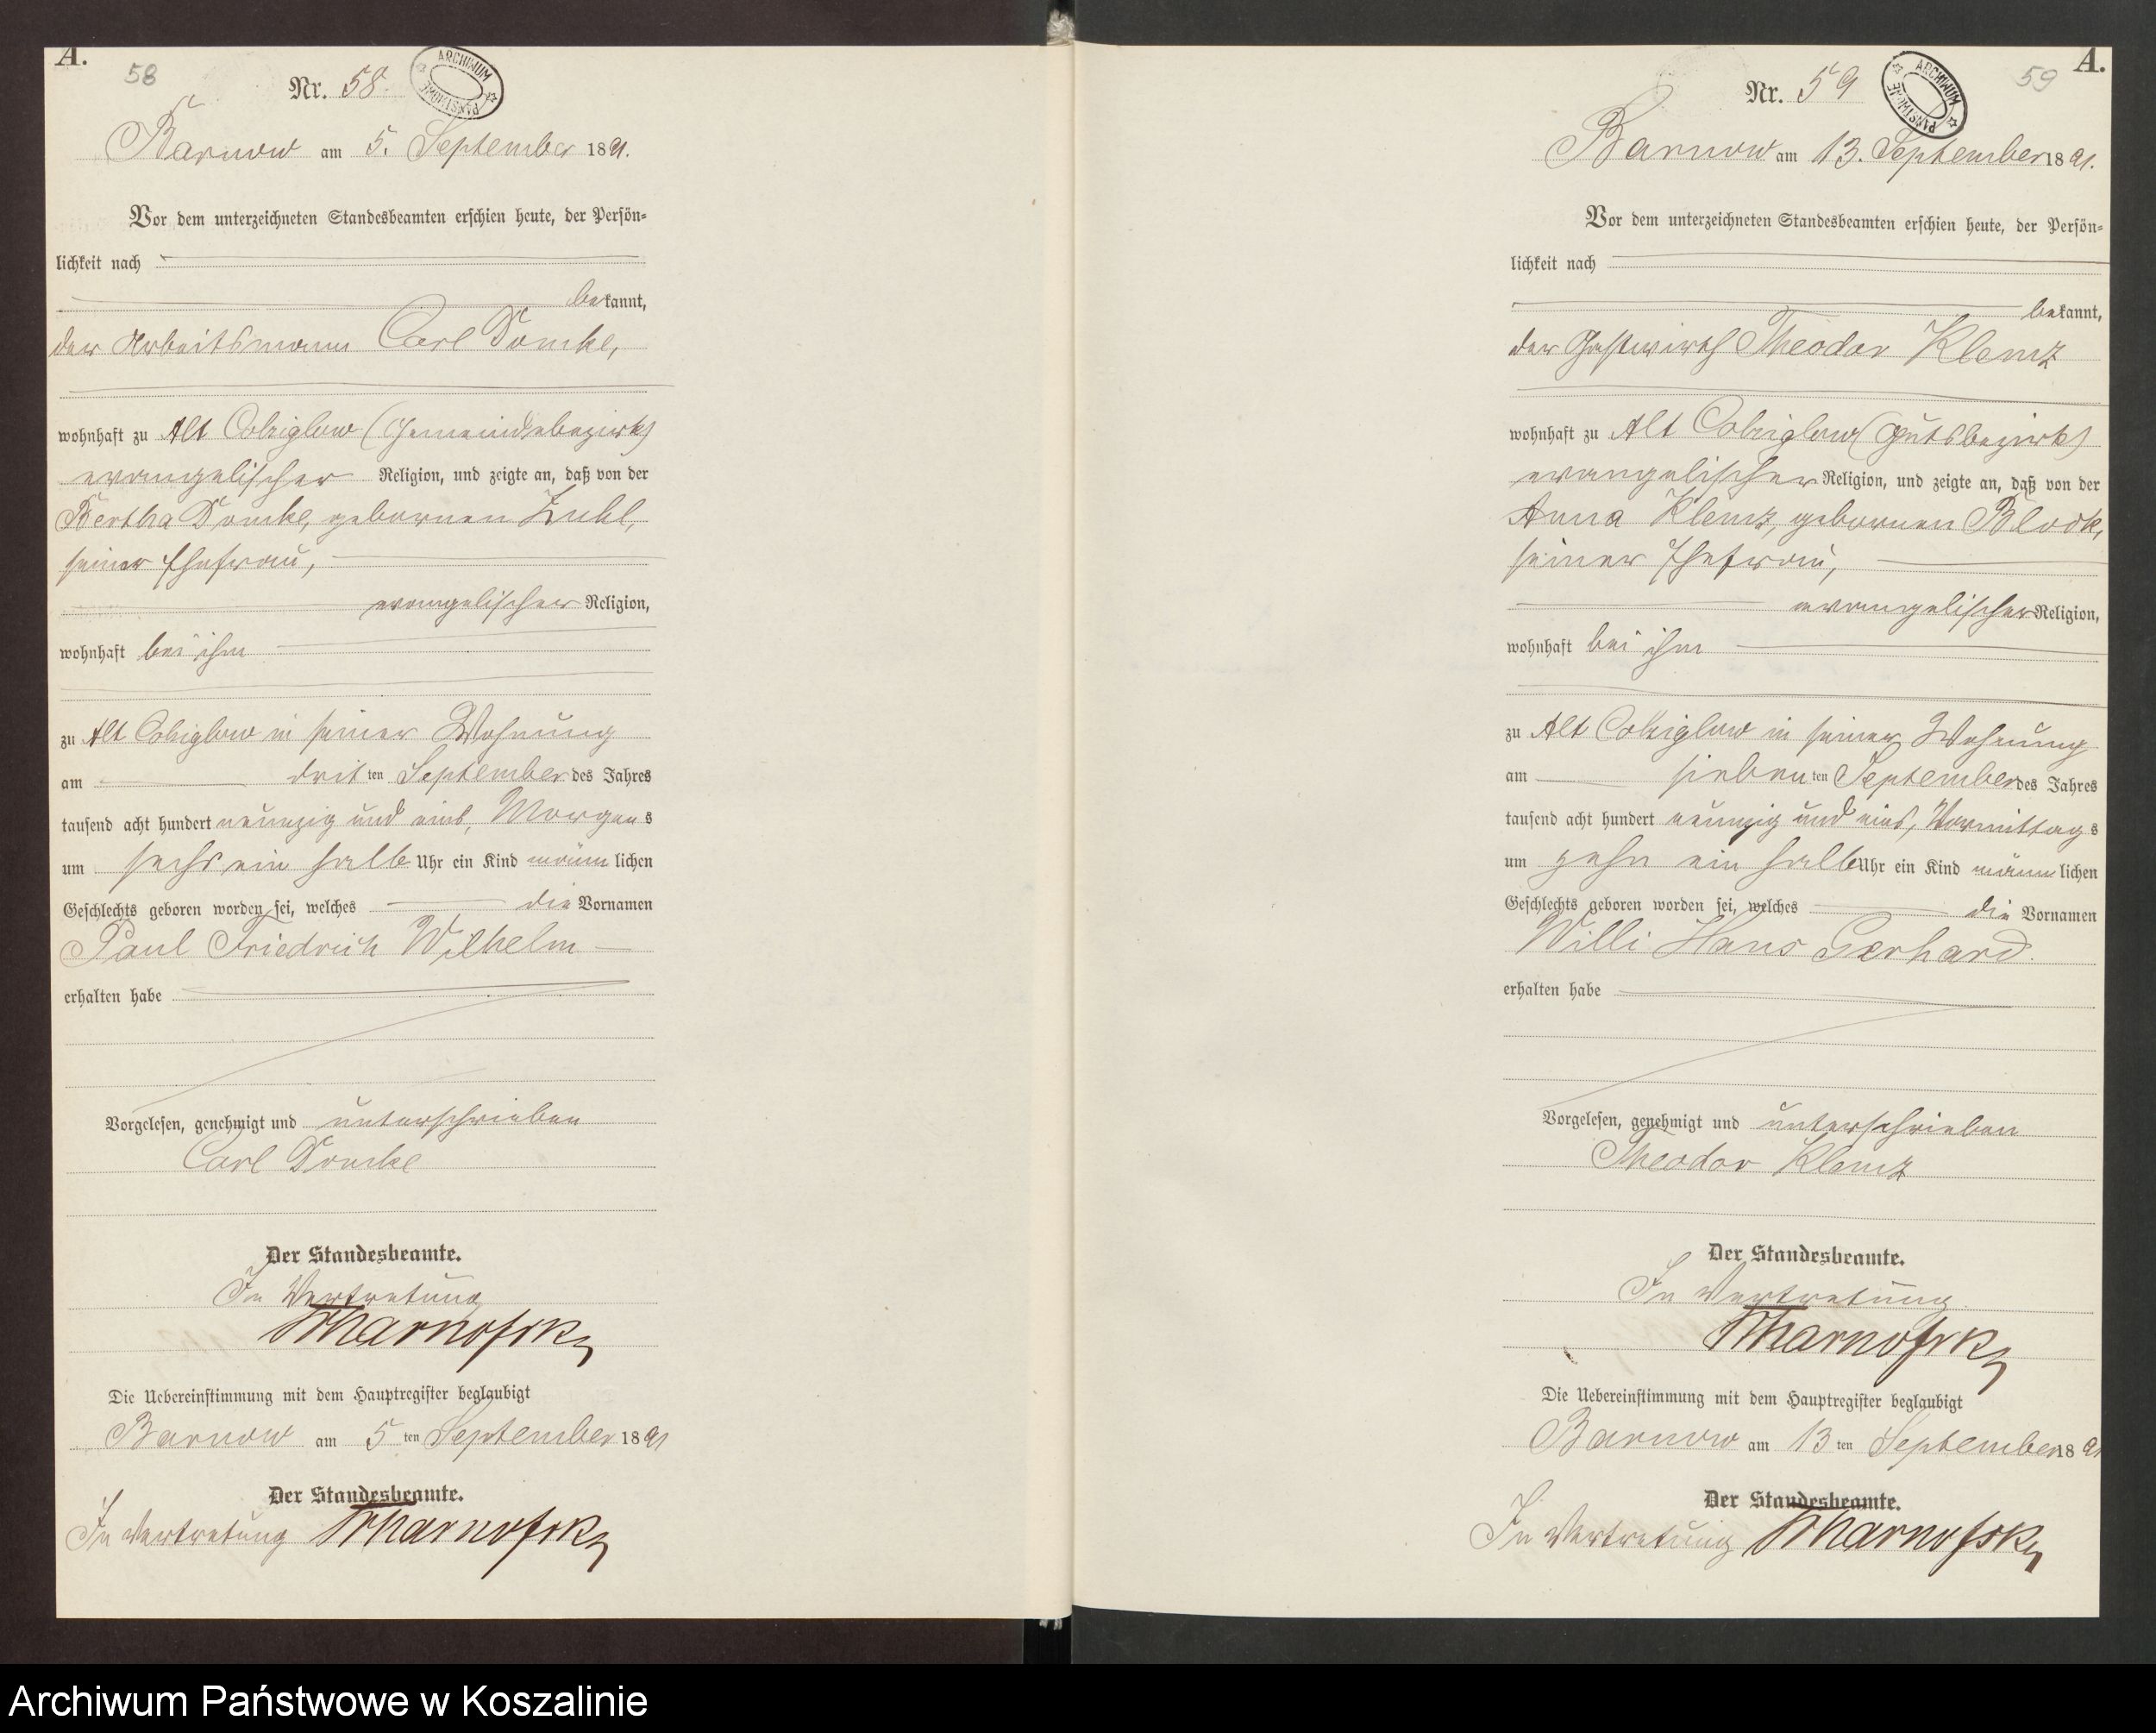 A.
58
Nr. 58.
ARCHIWUM PAŃSTWOWE
Barnow am 5. September 1891.
Vor dem unterzeichneten Standesbeamten erschien heute, der Persön=
lichkeit nach
bekannt,
der Arbeitsmann Carl Domke,
wohnhaft zu Alt Colziglow (Gemeindebezirk)
evangelischer Religion, und zeigte an, daß von der
Bertha Domke, gebornen Zuhl,
seiner Ehefrau,
evangelischer Religion,
wohnhaft bei ihm
zu Alt Colziglow in seiner Wohnung
am dritten September des Jahres
tausend acht hundert neunzig und eins, Morgens
um sechs ein halb Uhr ein Kind männlichen
Geschlechts geboren worden sei, welches die Vornamen
Paul Friedrich Wilhelm
erhalten habe
Vorgelesen, genehmigt und unterschrieben
Carl Domke
Der Standesbeamte.
In Vertretung
Die Uebereinstimmung mit dem Hauptregister beglaubigt
Barnow am 5ten September 1891
Der Standesbeamte.
In Vertretung
A.
59
Nr. 59
ARCHIWUM PAŃSTWOWE
Barnow am 13. September 1891.
Vor dem unterzeichneten Standesbeamten erschien heute, der Persön=
lichkeit nach
bekannt,
der Gastwirth Theodor Klemz
wohnhaft zu Alt Colziglow (Gutsbezirk)
evangelischer Religion, und zeigte an, daß von der
Anna Klemz, gebornen Block,
seiner Ehefrau,
evangelischer Religion,
wohnhaft bei ihm
zu Alt Colziglow in seiner Wohnung
am siebenten September des Jahres
tausend acht hundert neunzig und eins, Vormittags
um zehn ein halb Uhr ein Kind männlichen
Geschlechts geboren worden sei, welches die Vornamen
Willi Hans Gerhard.
erhalten habe
Vorgelesen, genehmigt und unterschrieben
Theodor Klemz
Der Standesbeamte.
In Vertretung
Die Uebereinstimmung mit dem Hauptregister beglaubigt
Barnow am 13ten September 1891
Der Standesbeamte.
In Vertretung
Archiwum Państwowe w Koszalinie